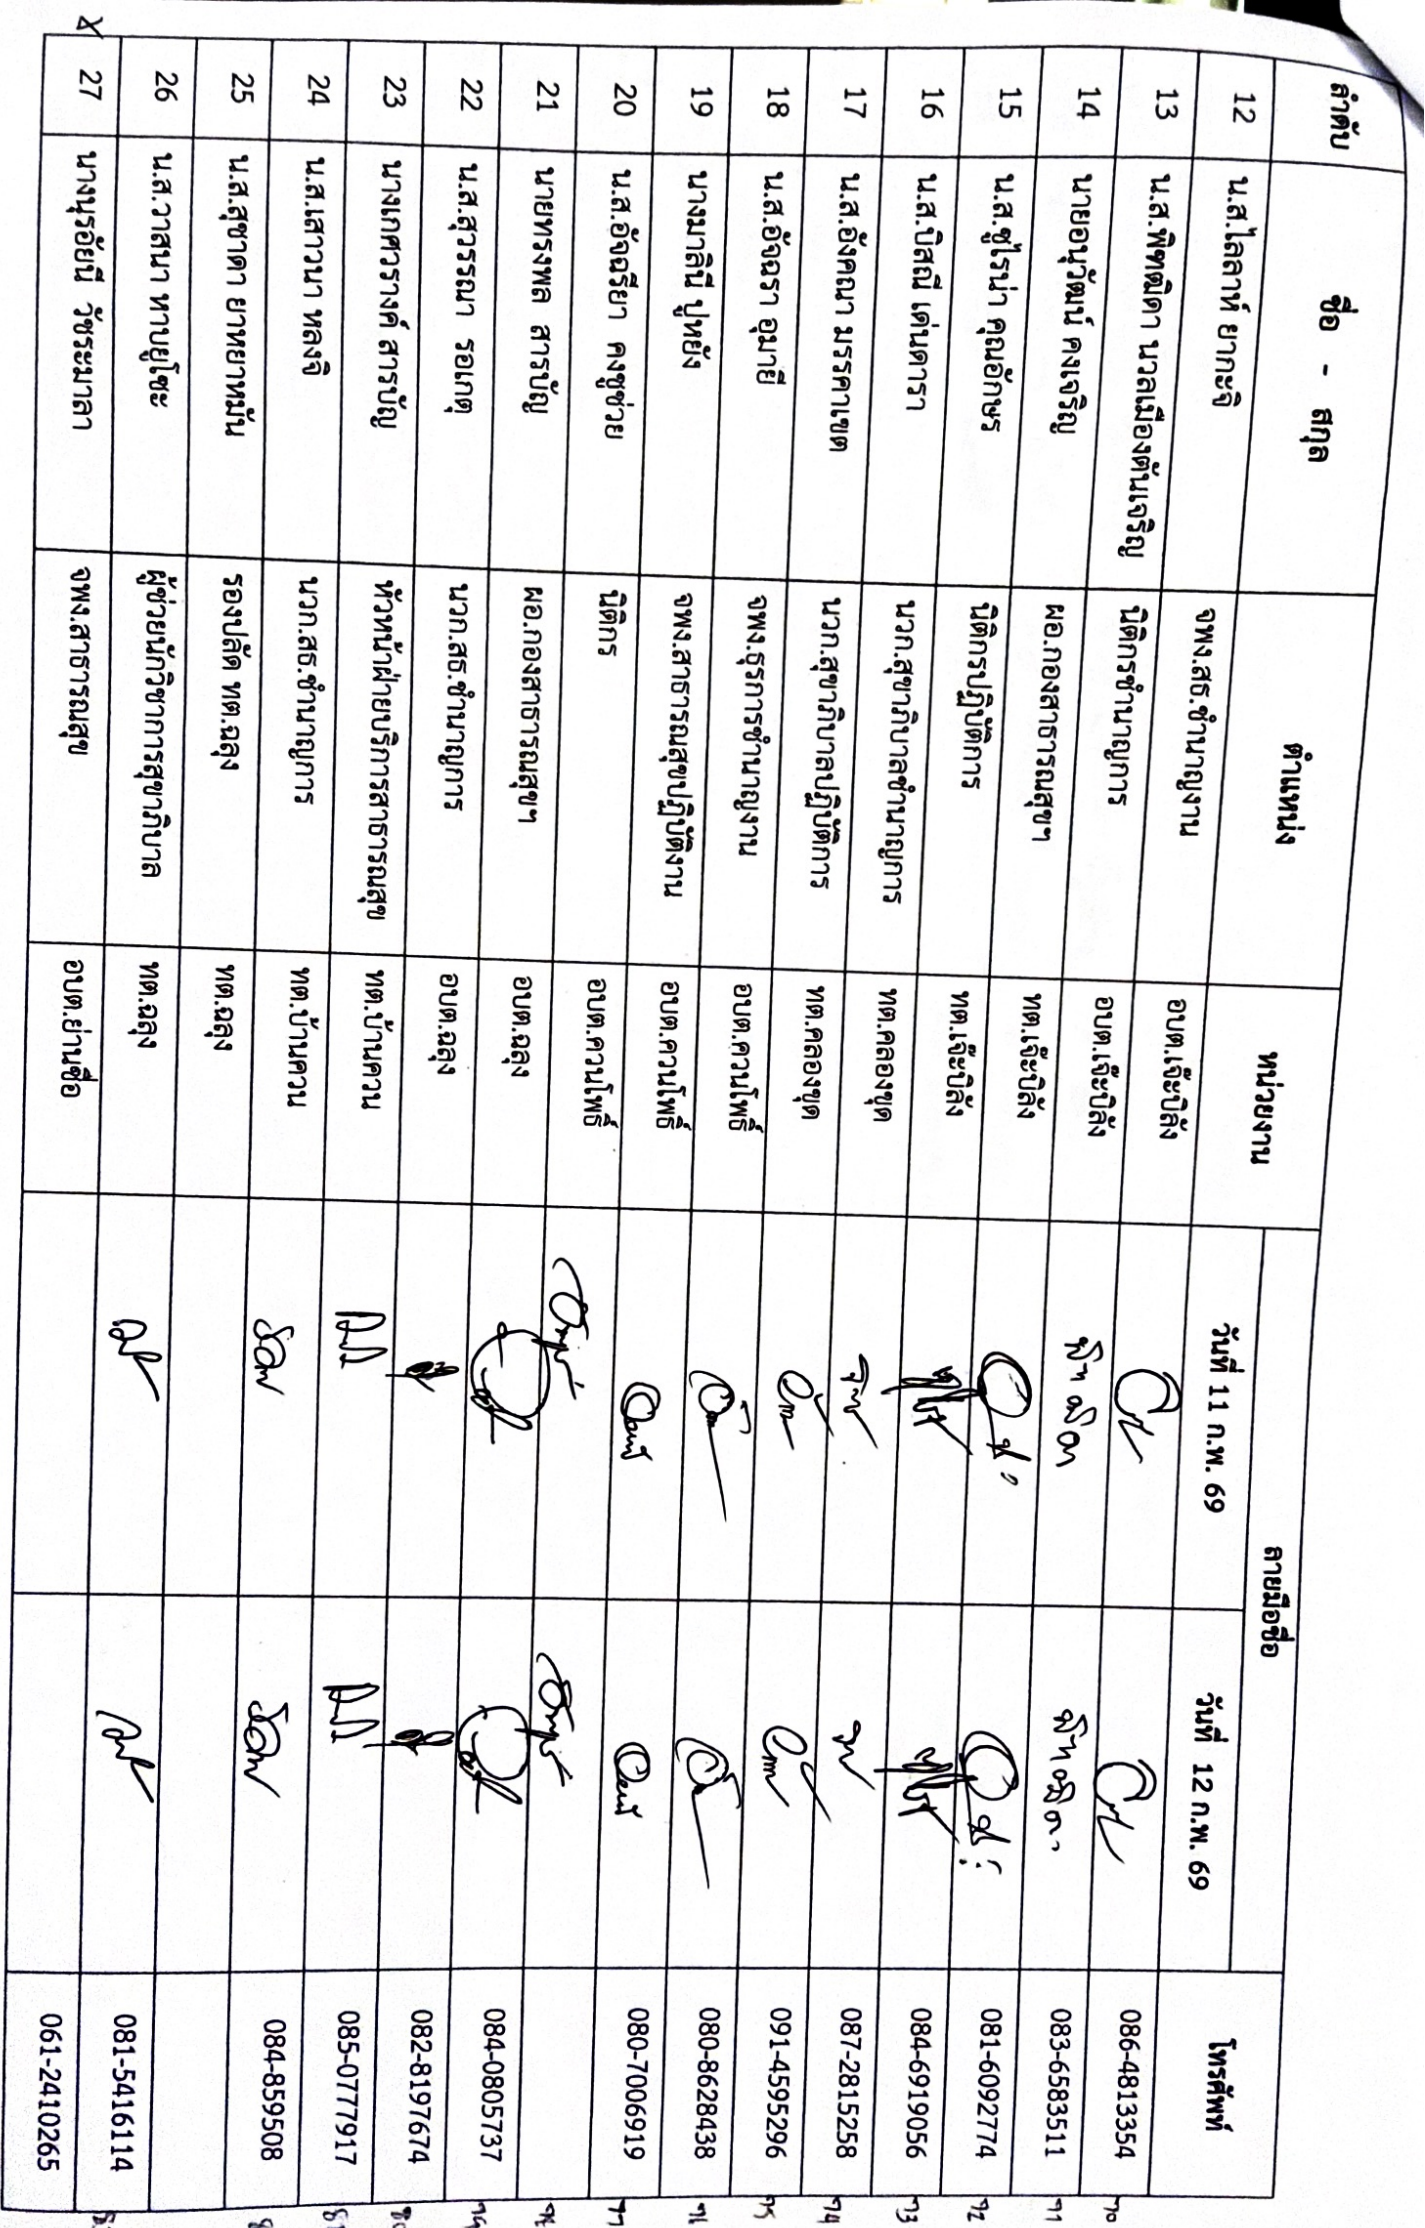 ลำดับ ชื่อ - สกุล ตำแหน่ง หน่วยงาน ลายมือชื่อ โทรศัพท์
วันที่ 11 ก.พ. 69 วันที่ 12 ก.พ. 69
12 น.ส.ไลลาห์ ยากะจิ จพง.สธ.ชำนาญงาน อบต.เจ๊ะบิลัง 086-4813354 ๗๐
13 น.ส.พิฑฒิดา นวลเมืองตันเจริญ นิติกรชำนาญการ อบต.เจ๊ะบิลัง 083-6583511 ๗๑
14 นายอนุวัฒน์ คงเจริญ ผอ.กองสาธารณสุขฯ ทต.เจ๊ะบิลัง 081-6092774 ๗๒
15 น.ส.ซูไรน่า คุณอักษร นิติกรปฏิบัติการ ทต.เจ๊ะบิลัง 084-6919056 ๗๓
16 น.ส.บิสณี เด่นดารา นวก.สุขาภิบาลชำนาญการ ทต.คลองขุด 087-2815258 ๗๔
17 น.ส.อังคณา มรรคาเขต นวก.สุขาภิบาลปฏิบัติการ ทต.คลองขุด 091-4595296 ๗๕
18 น.ส.อัจฉรา อุมายี จพง.ธุรการชำนาญงาน อบต.ควนโพธิ์ 080-8628438 ๗๖
19 นางมาลินี ปูหยัง จพง.สาธารณสุขปฏิบัติงาน อบต.ควนโพธิ์ 080-7006919 ๗๗
20 น.ส.อัจฉรียา คงชูช่วย นิติกร อบต.ควนโพธิ์ ๗๘
21 นายทรงพล สารบัญ ผอ.กองสาธารณสุขฯ อบต.ฉลุง 084-0805737 ๗๙
22 น.ส.สุวรรณา รอเกตุ นวก.สธ.ชำนาญการ อบต.ฉลุง 082-8197674
23 นางเกศวรางค์ สารบัญ หัวหน้าฝ่ายบริการสาธารณสุข ทต.บ้านควน 085-0777917
24 น.ส.เสาวนา หลงจิ นวก.สธ.ชำนาญการ ทต.บ้านควน 084-859508
25 น.ส.สุชาดา ยาหยาหมัน รองปลัด ทต.ฉลุง ทต.ฉลุง
26 น.ส.วาสนา หาบยูโซะ ผู้ช่วยนักวิชาการสุขาภิบาล ทต.ฉลุง 081-5416114
27 นางบุรอัยนี วัชระมาลา จพง.สาธารณสุข อบต.ย่านซื่อ 061-2410265